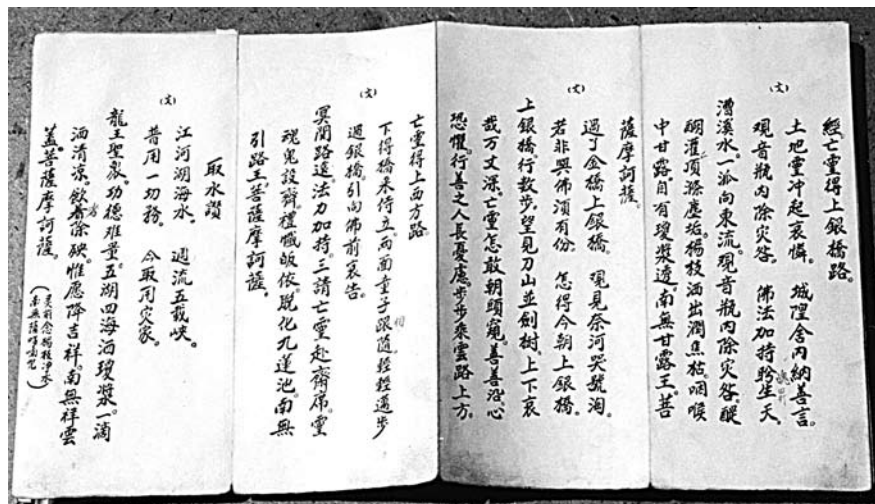 經。亡靈得上銀橋路。
(文)
土地靈冲起哀憐。 城隍舍內納善言。
观音瓶內除灾咎。 佛法加持 生天。
漕溪水。一派向東流。观音瓶內除灾咎。醍
醐灌頂滌塵垢。楊枝洒出潤焦枯。咽喉
中甘露自有瓊漿透。南無甘露王。菩
薩摩訶薩。
(文)
過了金橋上銀橋。 观見奈河哭號淘。
若非與佛湏有份。 怎得今朝上銀橋。
上銀橋。行數步。望見刀山並劍樹。上下哀
哉万丈深。亡靈怎敢朝頭窺。善善 。心
恐懼。行善之人長憂慮。步步乘雲路上方。
亡靈得上西方路
(文)
下得橋來侍立。兩面童子跟隨。輕輕邁步
過銀橋。引向佛前哀告。
冥間路遠法力加持。三請亡靈赴齋席。靈
魂免設齋。禮懺皈依。脫化九蓮池。南無
引路王。菩薩摩訶薩。
取水讚
(文)
江河湖海水。 週流五載峽。
普用一切務。 今取用灾家。
龍王聖 。功德难量。五湖四海洒瓊漿。一滴
洒清凉。飲着除殃。惟愿降吉祥。南無祥雲
盖。菩薩摩訶薩。
(灵前念楊枝净水
南無薩 )